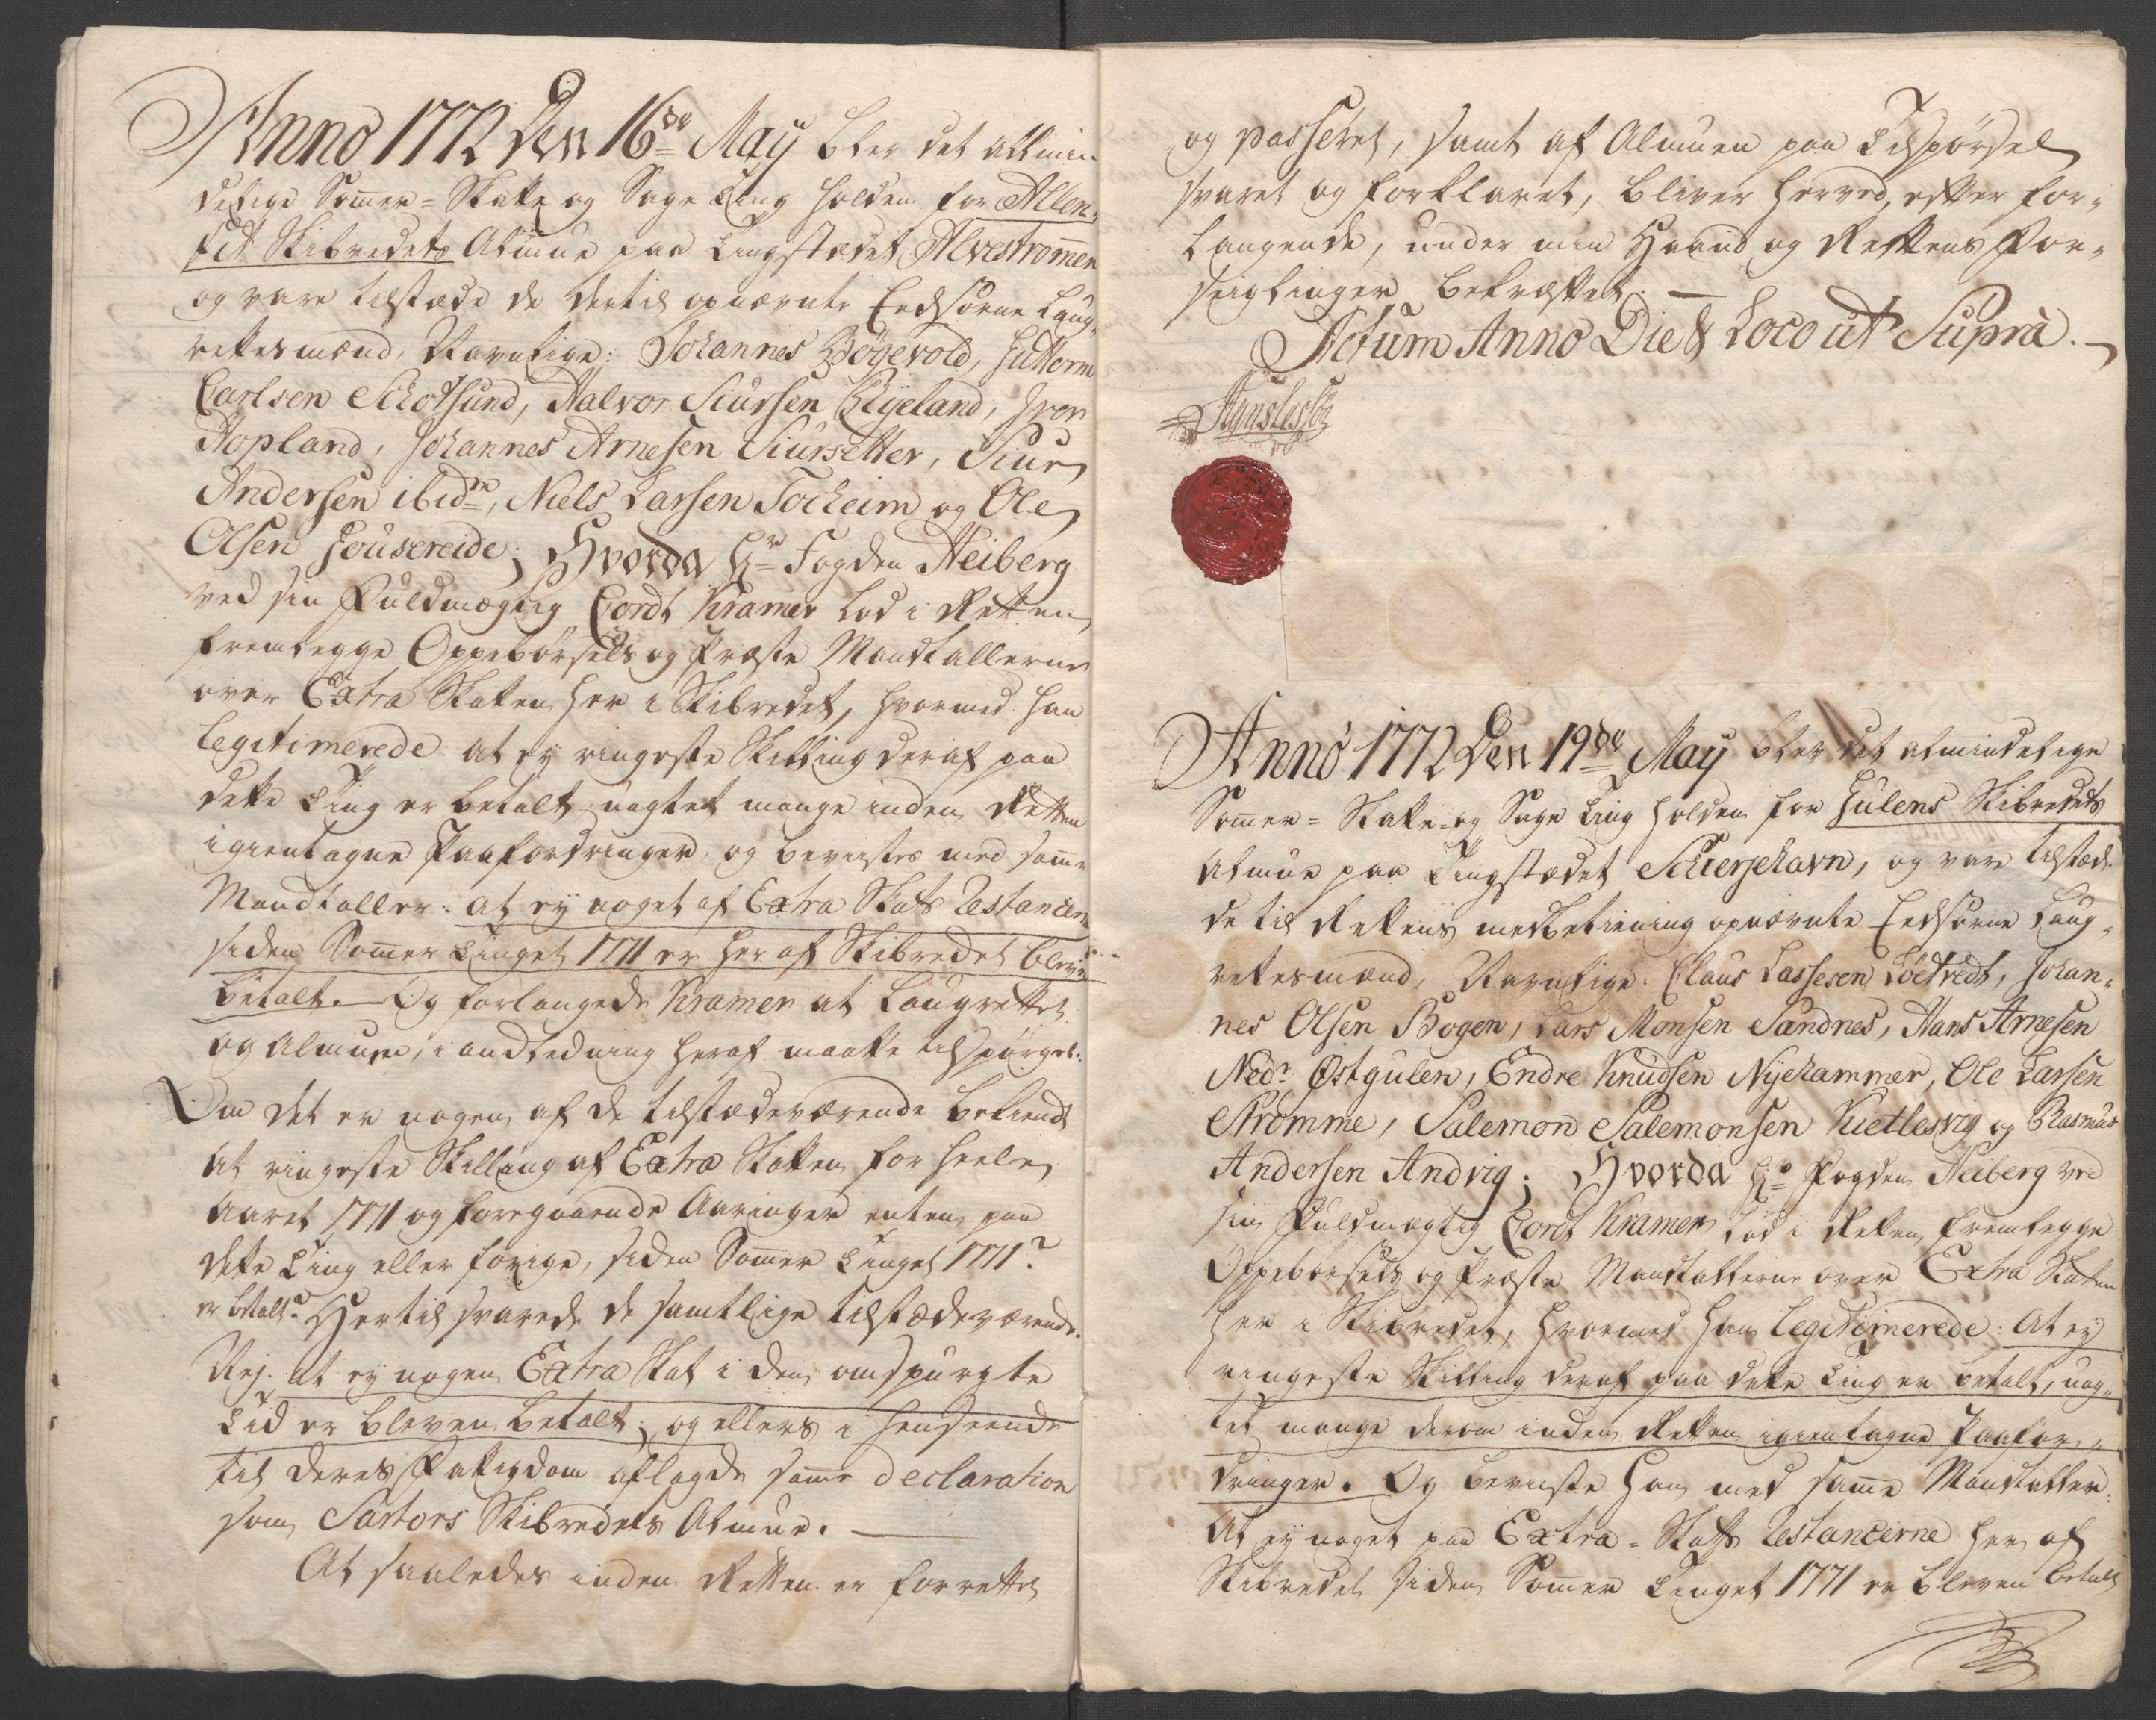 Anno 1772 Den 16de May blev det allmin-
delige Sommer-Skatte og Sage Ting holden for Allen-
fit Skibredets Almue paa Tingstædet Alvestrommen
og vare tilstæde de dertil opnævnte Eedsorne Laug-
rettesmænd, Navnlige: Johannes Bögevold, Guttorm
Carlsen Schotsund, Halvor Siursen Ryeland, Iver
Hopland, Johannes Arnesen Siursetter, Siur
Andersen ibidm, Niels Larsen Tocheim og Ole
Olsen Housereide; Hvorda Hr Fogden Heiberg
ved sin Fuldmægtig Cordt Kramer lod i Retten
fremlegge Oppebörsels og Præste Mandtallerne
over Extra Skatten her i Skibredet, hvormed han
legitimerede: at ey ringeste Skilling deraf paa
dette Ting er betalt, uagtet mange inden Retten
igientagne Paafordringer, og bevistes med samme
Mandtaller: at ey noget af Extra Skatts Restancen
siden Sommer Tinget 1771 er her af Skibredet bleven
betalt. Og forlangede Kramer at Laugrettet
og Almuen, i andledning heraf maatte tilspörges:
Om det er nogen af de tilstædeværende bekiendt
at ringeste Skilling af Extra Skatten for heele
Aaret 1771 og foregaaende Aaringer enten paa
dette Ting eller forige, siden Sommer Tinget 1771?
er betalt? Hertil svarede de samtlige tilstædeværende.
Nej. at ey nogen Extra Skat i den omspurgte
Tid er bleven betalt; og ellers i henseende
til deres Fatigdom aflagde samme declaration
som Sartors Skibredets Almue.
At saaledes inden Retten er forrettet
og passeret, samt af Almuen paa Tilspörsel
svaret og forklaret, bliver herved, efter for-
langende, under min Haand og Rettens For-
seiglinger bekræftet.
Actum Anno Die & Loco ut Supra.
Anno 1772 Den 19de May blev det almindelige
Sommer-Skatte og Sage Ting holden for Gulens Skibredets
Almue paa Tingstædet Schierjehavn, og vare tilstæde
de til Rettens medbetiening opnævnte Eedsorne Laug-
rettesmænd, Navnlige: Claus Lassesen Löetvedt, Johan-
nes Olsen Bogen, Lars Monsen Sandnes, Hans Arnesen
Nedr Østgulen, Endre Knudsen Nyehammer, Ole Larsen
Stromme, Salemon Salemonsen Kietlesvig og Rasmus
Andersen Andvig; Hvorda Hr Fogden Heiberg ved
sin Fuldmægtig Cordt Kramer lod i Retten fremlegge
Oppebörsels og Præste Mandtallerne over Extra Skatten
her i Skibredet, hvormed han legitimerede: At ey
ringeste Skilling deraf paa dette Ting er betalt, uag-
tet mange derom inden Retten igientagne Paafor-
dringer. Og beviste han med samme Mandtaller:
At ey noget paa Extra-Skatts Restancerne her af
Skibredet siden Sommer Tinget 1771 er bleven betalt